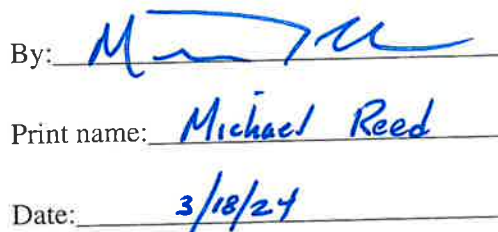 By:
Print name: Michael Reed
Date: 3/18/24